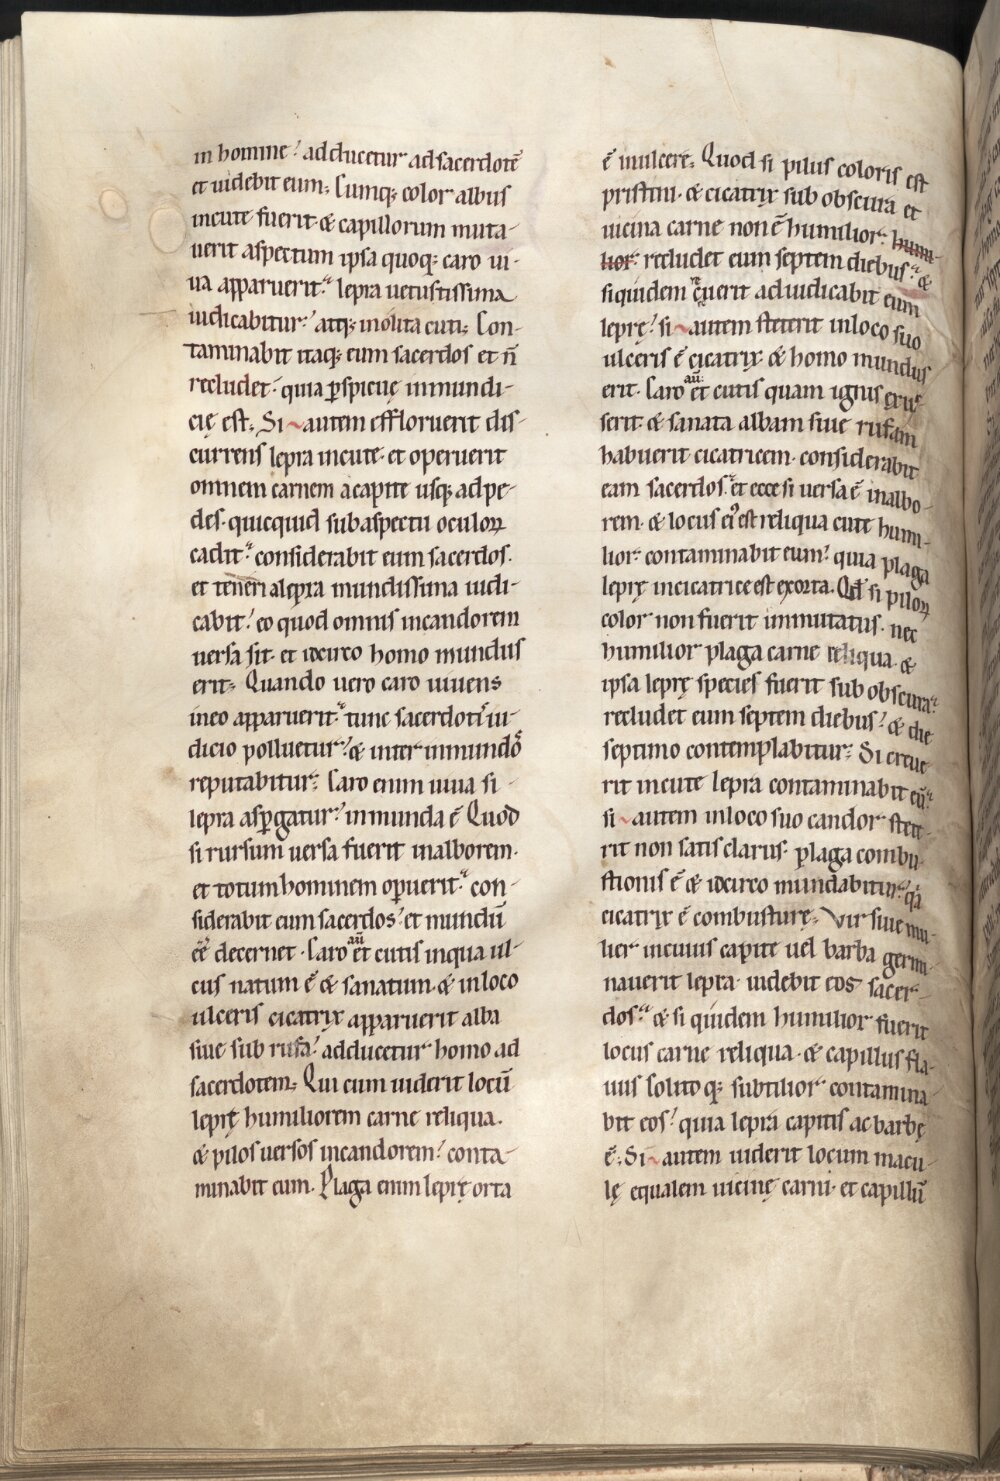 in homine? adducetur ad sacerdotē
et uidebit eum; Cumq; color albus
in cute fuerit· & capillorum muta-
uerit aspectum ipsa quoq; caro ui-
ua apparuerit: lepra uetustissima
iudicabitur? atq; inolita cuti; Con-
taminabit itaq; eum sacerdos et n̄
recludet· quia ꝑspicuę inmundi-
cię est; Si autem effloruerit dis-
currens lepra in cute· et operuerit
omnem carnem a capite usq; ad pe-
des· quicquid sub aspectu oculoꝝ
cadit: considerabit eum sacerdos·
et teneri a lepra mundissima iudi-
cabit? eo quod omnis in candorem
uersa sit· et idcirco homo mundus
erit; Quando uero caro uiuens
in eo apparuerit: tunc sacerdotis iu-
dicio polluetur? & inter inmundos
reputabitur; Caro enim uiua si
lepra aspergatur? inmunda ē Quod
si rursum uersa fuerit in alborem·
et totum hominem opuerit: con-
siderabit eum sacerdos? et mundū
eē decernet· Caro aū et cutis in qua ul-
cus natum ē & sanatum· & in loco
ulceris cicatrix apparuerit alba
siue sub rufa? adducetur homo ad
sacerdotem; Qui cum uiderit locū
leprę humiliorem carne reliqua·
& pilos uersos in candorem? conta-
minabit eum· Plaga enim leprę orta
ē in ulcere; Quod si pilus coloris est
pristini· & cicatrix sub obscura et
uicina carne non ē humilior· humi-
lior· recludet eum septem diebus: &
si quidem creuerit adiudicabit eum
leprę? si autem steterit in loco suo
ulceris ē cicatrix & homo mundus
erit· Caro aū et cutis quam ignis exus
serit· & sanata albam siue rufam
habuerit cicatricem· considerabit
eam sacerdos: et ecce si uersa ē in albo-
rem· & locus ei' est reliqua cute humi-
lior· contaminabit eum? quia plaga
leprę in cicatrice est exorta· Qd si piloꝝ
color non fuerit immutatus· nec
humilior plaga carne reliqua· &
ipsa leprę species fuerit sub obscura:
recludet eum septem diebus? & die
septimo contemplabitur; Si creue
rit in cute lepra contaminabit eū:
si autem in loco suo candor stete-
rit non satis clarus· plaga combu-
stionis ē & idcirco mundabitur: qa
cicatrix ē combusturę; Vir siue mu-
lier in cuius capite uel barba germi-
nauerit lepra· uidebit eos sacer-
dos: & si quidem humilior fuerit
locus carne reliqua· & capillus fla-
uus solito q; subtilior contamina-
bit eos? quia lepra capitis ac barbę
ē; Si autem uiderit locum macu-
lę equalem uicinę carni· et capillū